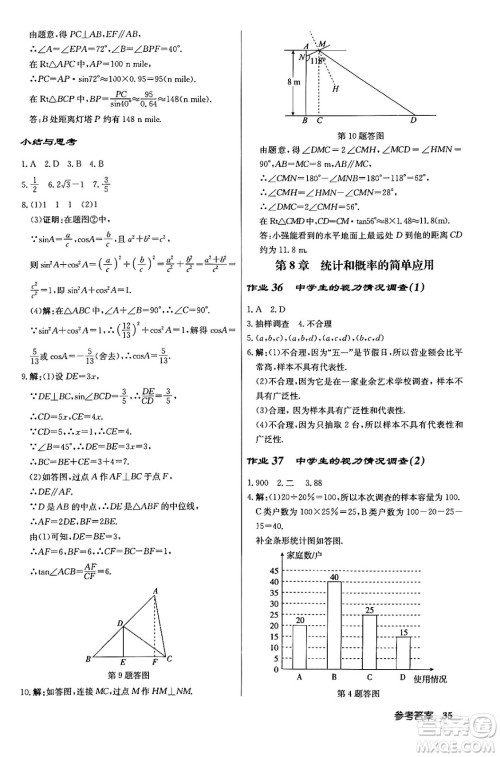 由题意,得 PC⊥AB,EF∥AB,
∴∠A=∠CPE=72°,∠B=∠BPF=40°.
在 Rt△APC 中,∵AP=100 n mile,
∴PC=AP·sin72°≈100×0.95=95(n mile).
在 Rt△BCP 中,∠B=40°,
∴PB=PC/sin40°≈95/0.64≈148(n mile).
答:B 处距离灯塔 P 约有 148 n mile.
小结与思考
1.A 2.D 3.B 4.B
5.1/2 6.2√3-1 7.3/5
8.(1)1 1 1 (2)1
(3)证明:在题图②中,
∵sinA=a/c,cosA=b/c,且 a²+b²=c²,
则 sin²A+cos²A=(a/c)²+(b/c)²=a²/c²+b²/c²=(a²+b²)/c²=c²/c²=1,
即 sin²A+cos²A=1.
(4)解:在△ABC 中,∠A+∠B=90°,∴∠C=90°.
∵sin²A+cos²A=1,∴(12/13)²+cos²A=1,解得 cosA=
5/13或 cosA=-5/13(舍去),∴cosA=5/13.
9.解:(1)设 DE=3x,
∵DE⊥BC,sin∠BCD=3/5,∴DE/CD=3/5,
∴CD=5x,∴CE=4x.
∵∠B=45°,∴BE=DE=3x.
∵BE+CE=7,∴x=1,
∴CD=5.
(2)如答图,过点 A 作 AF⊥BC 于点 F,
∵D 是 AB 的中点,
∴DE 是△ABF 的中位线,
∴AF=2DE,BF=2BE.
由(1)可知,BE=DE=3,
∴AF=6,BF=6,
∴CF=1,
∴tan∠ACB=AF/CF=6.
A
D
B E F C
第 9 题答图
10.解:如答图,连接 MC,过点 M 作 HM⊥NM,
M
A
N
118°
8 m
H
B C D
第 10 题答图
由题意,得∠DMC=2∠CMH,∠MCD=90°,
∵AB=MC=8 m,∠NMD=118°,
∴∠CMN=180°-∠NMD=180°-118°=62°,
∴∠CMH=90°-∠CMN=28°,
∴∠DMC=2∠CMH=56°.
在 Rt△CMD 中,CD=CM·tan56°≈8×1.48≈11.8(m).
答:小强能看到的水平地面上最远处 D 到他的距离
为 11.8 m.
第 8 章 统计和概率的简单应用
作业 36 中学生的视力情况调查(1)
1.A 2.D
3.抽样调查 4.不合理
5.(a,b,c),(a,b,d),(a,c,d),(b,c,d)
6.解:(1)不合理,因为“五一”是节假日,所以营业额会比平
常高,样本不具有广泛性.
(2)不合理,因为它是在一家业余艺术学校调查,样本不具
有广泛性.
(3)不合理,因为只抽取 2 所省会城市的中学,样本不具有
广泛性.
作业 37 中学生的视力情况调查(2)
1.900 2.二 3.88
4.解:(1)20÷20%=100,所以本次调查的样本容量为 100.
C 类户数为 100×25%=25,D 类户数为 100-20-40-25
=15.
补全条形统计图如答图.
家庭数/户
45
40
35
30
25
20
15
10
5
0
20
40
25
15
A B C D 类型
第 4 题答图
参考答案 35